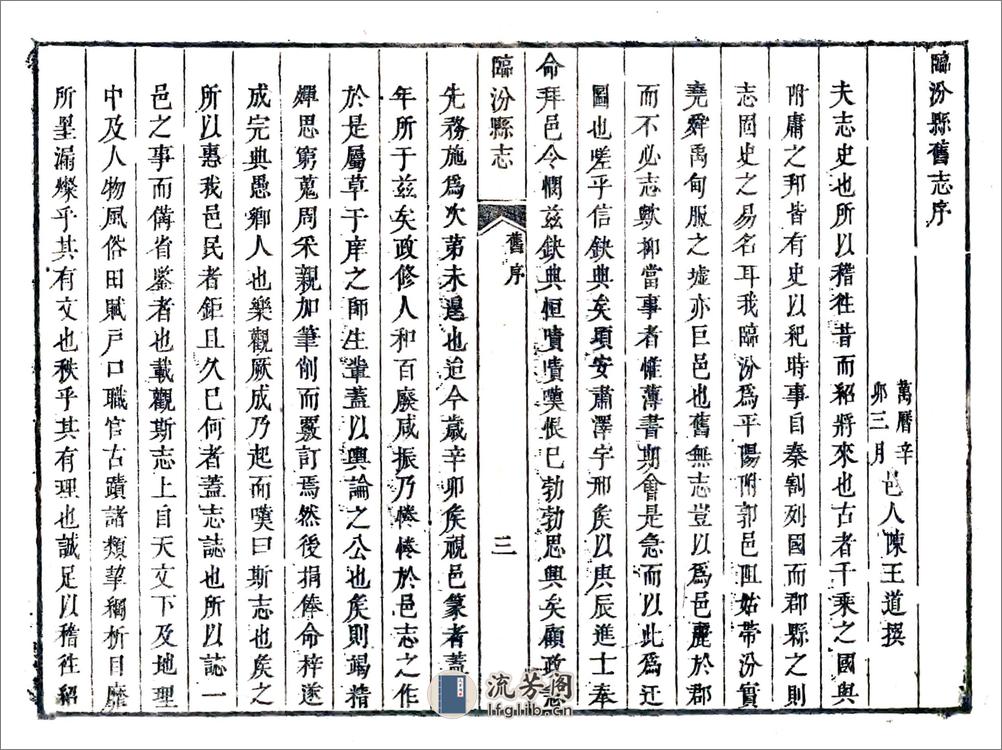 臨汾縣舊志序
萬曆辛卯三月 邑人陳王道撰
夫志史也所以稽徃昔而紹將來也古者千乘之國與
附庸之邦皆有史以紀時事自秦割列國而郡縣之則
志固史之易名耳我臨汾爲平陽附郭邑阻姑帶汾實
堯舜禹甸服之墟亦巨邑也舊無志豈以爲邑麗於郡
而不必志歟抑當事者惟薄書期會是急而以此爲迂
圖也嗟乎信缺典矣頃安肅澤宇邢矦以庚辰進士奉
命拜邑令憫兹缺典恒嘖嘖嘆恨已勃勃思興矣顧政
臨汾縣志
舊序
三
先務施爲次第未遑也迨今歲辛卯矦視邑篆者蓋
年所于兹矣政修人和百廢咸振乃惓惓於邑志之作
於是屬草于庠之師生軰蓋以輿論之公也矦則竭精
殫思窮蒐周采親加筆削而覈訂焉然後捐俸命梓遂
成完典愚鄉人也樂觀厥成乃起而嘆曰斯志也矦之
所以惠我邑民者鉅且久已何者蓋志誌也所以誌一
邑之事而備省鑒者也載觀斯志上自天文下及地理
中及人物風俗田賦戸口職官古蹟諸類挈綱析目靡
所罣漏燦乎其有文也秩乎其有理也誠足以稽徃紹
流芳阁
lfglib.cn